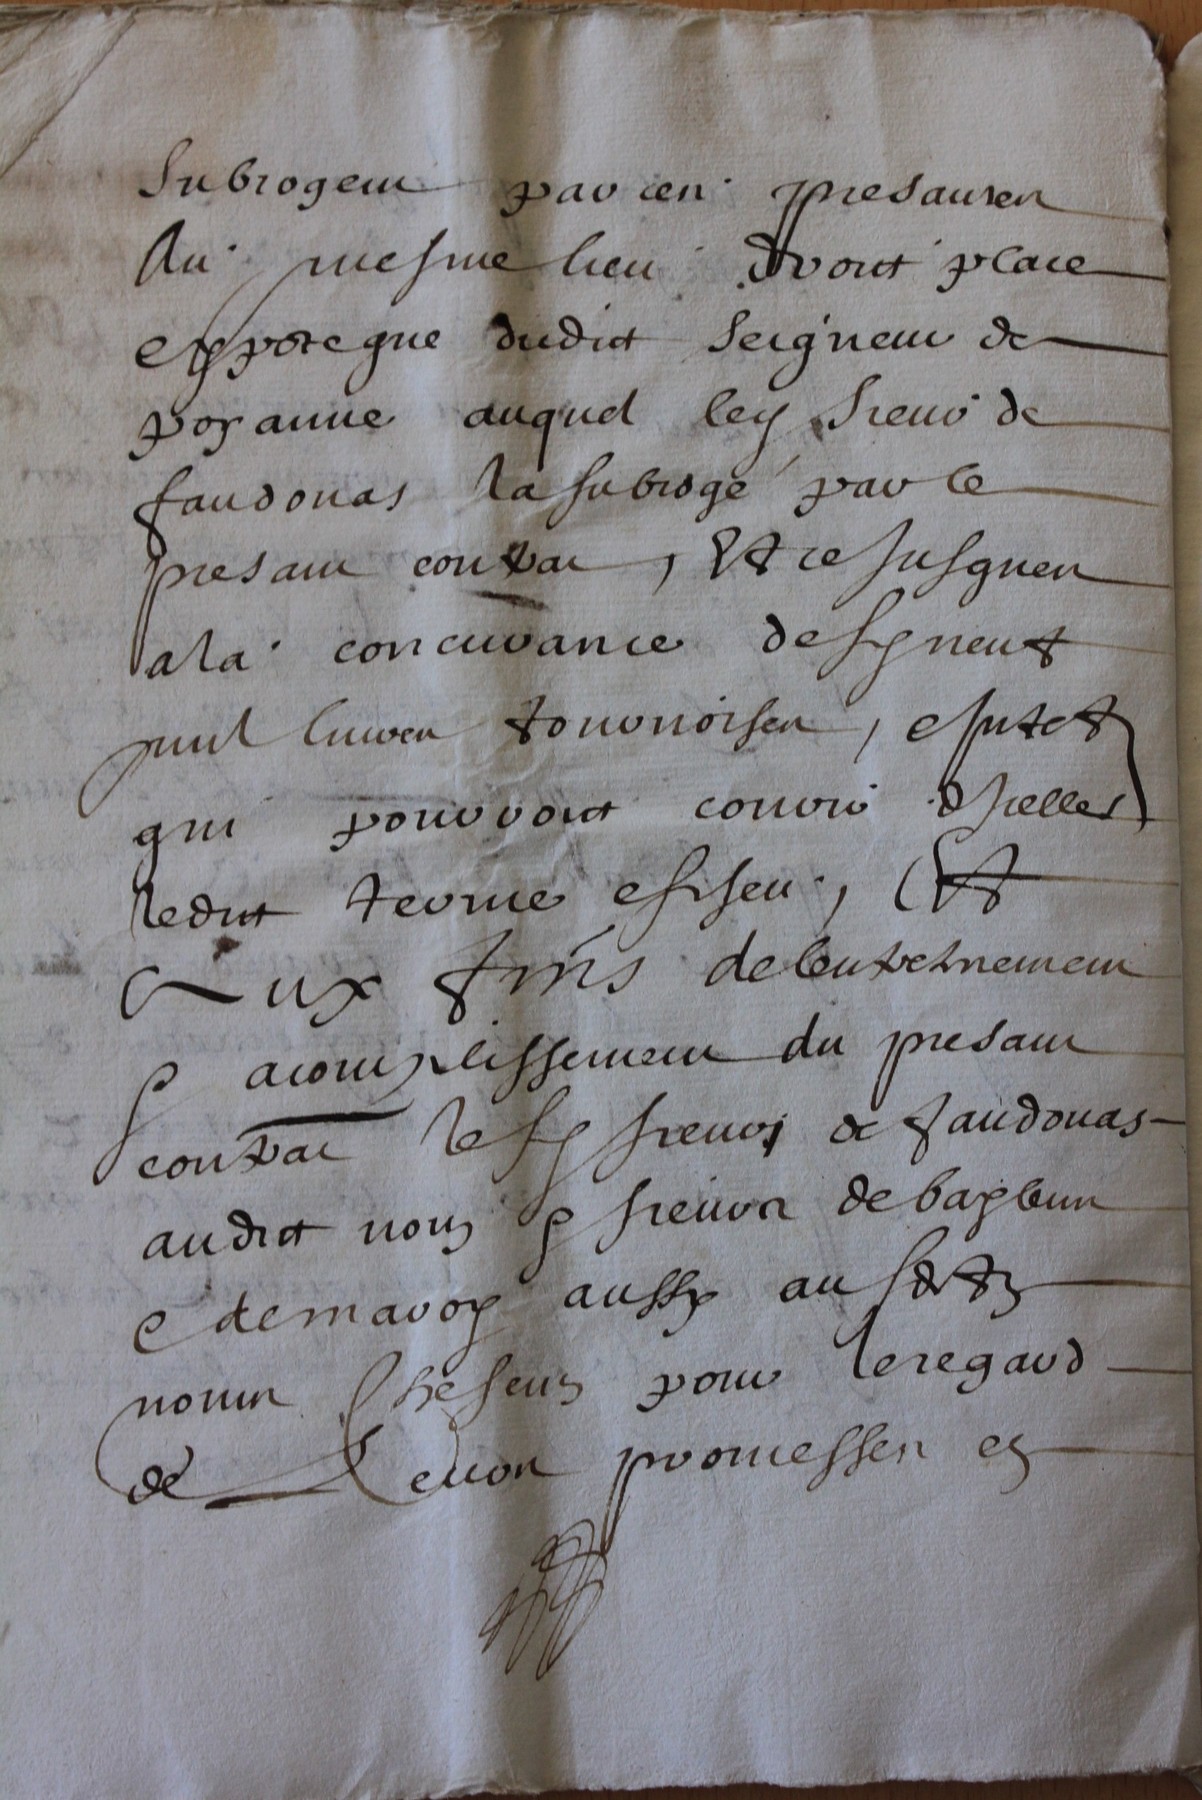 subrogent par ces presantes
Au mesme lieu droict place
et ypoteque dudict seigneur de
poyanne auquel led sieur de
faudouas la subrogé par le
presant contrat, Et ce jusques
a la concurance desd neuf
mil livres tournoises, et
qui pourront courir
ledict terme, Et
Aux fins de lentretnement
et acomplissement du presant
contrat led sieur de faudouas
audict nom et sieur de
et de mavoy aussy
nom pour le regard
de promesses et